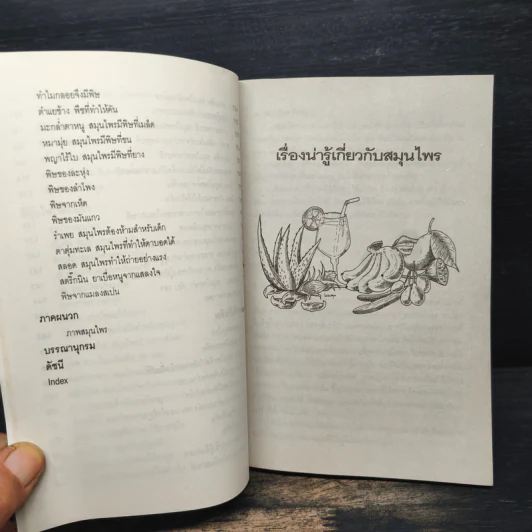 ทำไมกลอยจึงมีพิษ
ตำแยช้าง พืชที่ทำให้คัน
มะกล่ำตาหนู สมุนไพรมีพิษที่เมล็ด
หมามุ่ย สมุนไพรมีพิษที่ขน
พญาไร้ใบ สมุนไพรมีพิษที่ยาง
พิษของละหุ่ง
พิษของลำโพง
พิษจากเห็ด
พิษของมันแกว
รำเพย สมุนไพรต้องห้ามสำหรับเด็ก
ตาตุ่มทะเล สมุนไพรที่ทำให้ตาบอดได้
สลอด สมุนไพรทำให้ถ่ายอย่างแรง
สตริ๊กนิน ยาเบื่อหนูจากแสลงใจ
พิษจากแมลงสเปน
ภาคผนวก
ภาพสมุนไพร
บรรณานุกรม
ดัชนี
Index
เรื่องน่ารู้เกี่ยวกับสมุนไพร